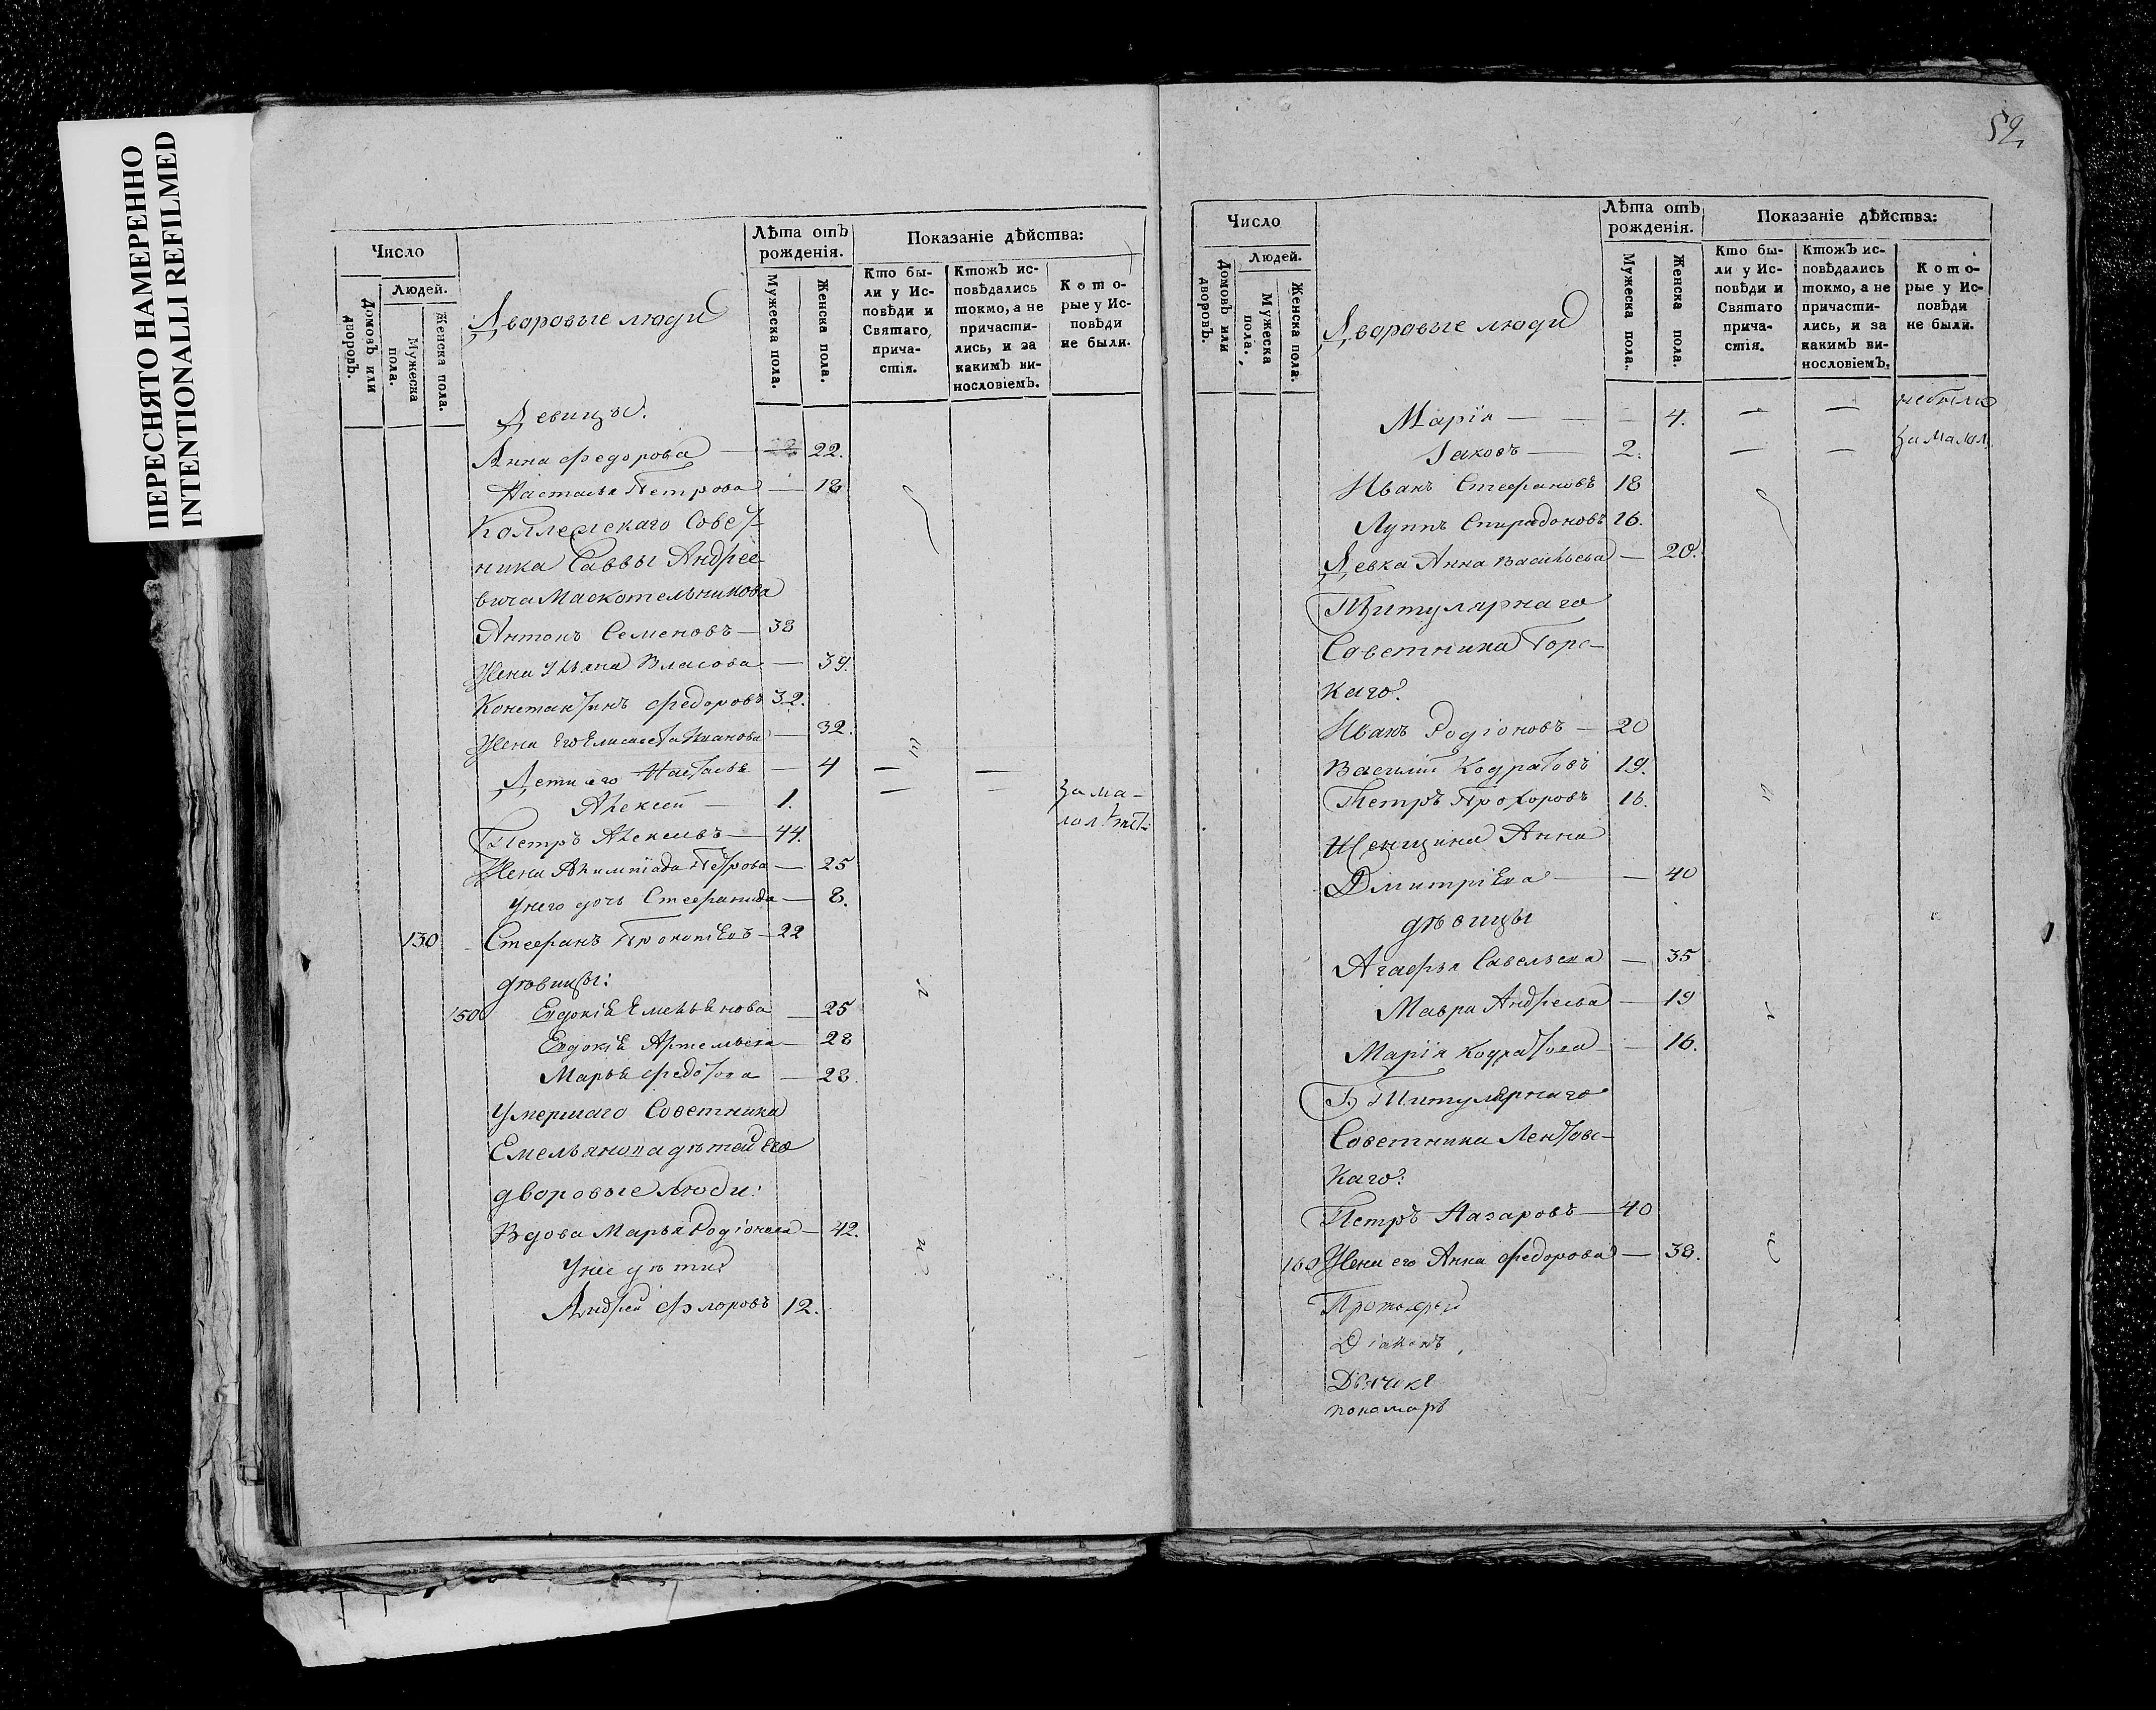 ПЕРЕСНЯТО НАМЕРЕННО
INTENTIONALLI REFILMED
Число
Людей.
Домовъ или дворовъ.
Мужеска пола.
Женска пола.
Дворовые люди
Лѣта отъ рожденія.
Мужеска пола.
Женска пола.
Показаніе дѣйства:
Кто были у Исповѣди и Святаго причастія.
Ктожъ исповѣдались токмо, а не причастились, и за какимъ винословіемъ.
Которые у Исповѣди не были.
Девицы.
Анна Федорова — 22.
Настасья Петрова — 18
Коллежскаго Совет-
ника Саввы Андрее-
вича Маскотельникова
Антонъ Семеновъ — 38
Жена Ульяна Власова — 39.
Константинъ Федоровъ 32.
Жена его Елисавета Иванова — 32.
Дети его Настасья — 4 — —
Алексей — 1. — — За ма-
лолѣт:
Петръ Алексеевъ — 44.
Жена Алимпіада Петрова — 25
у него дочь Стефанида — 8.
130 Стефанъ Прокопіевъ — 22
дѣвицы:
150 Евдокія Емельянова — 25
Евдокія Артемьева — 28
Марья Федотова — 28.
Умершаго Советника
Емельянова детей его
дворовые люди:
Вдова Марья Родіонова — 42.
У нее дѣти
Андрей Флоровъ 12.
52
Число
Людей.
Домовъ или дворовъ.
Мужеска пола.
Женска пола.
Дворовые люди
Лѣта отъ рожденія.
Мужеска пола.
Женска пола.
Показаніе дѣйства:
Кто были у Исповѣди и Святаго причастія.
Ктожъ исповѣдались токмо, а не причастились, и за какимъ винословіемъ.
Которые у Исповѣди не были.
Марія — — — 4. — — небыли
Іаковъ — 2. — — За малол.
Иванъ Стефановъ 18
Луппъ Спиридоновъ 26.
Девка Анна Васильева — 20.
Титулярнаго
Советника Горс-
каго.
Иванъ Родіоновъ — 20
Василій Кодратовъ 19.
Петръ Прохоровъ 16.
Женщина Анна
Димитріева — — 40
дѣвицы
Агафья Савельева — 35
Мавра Андреева — 19
Марія Кодратова — 16.
Г. Титулярнаго
Советника Лентовс-
каго:
Петръ Назаровъ — 40
160 Жена его Анна Федорова — 38.
Протоіерей
Діаконъ
Дьячекъ
пономарь